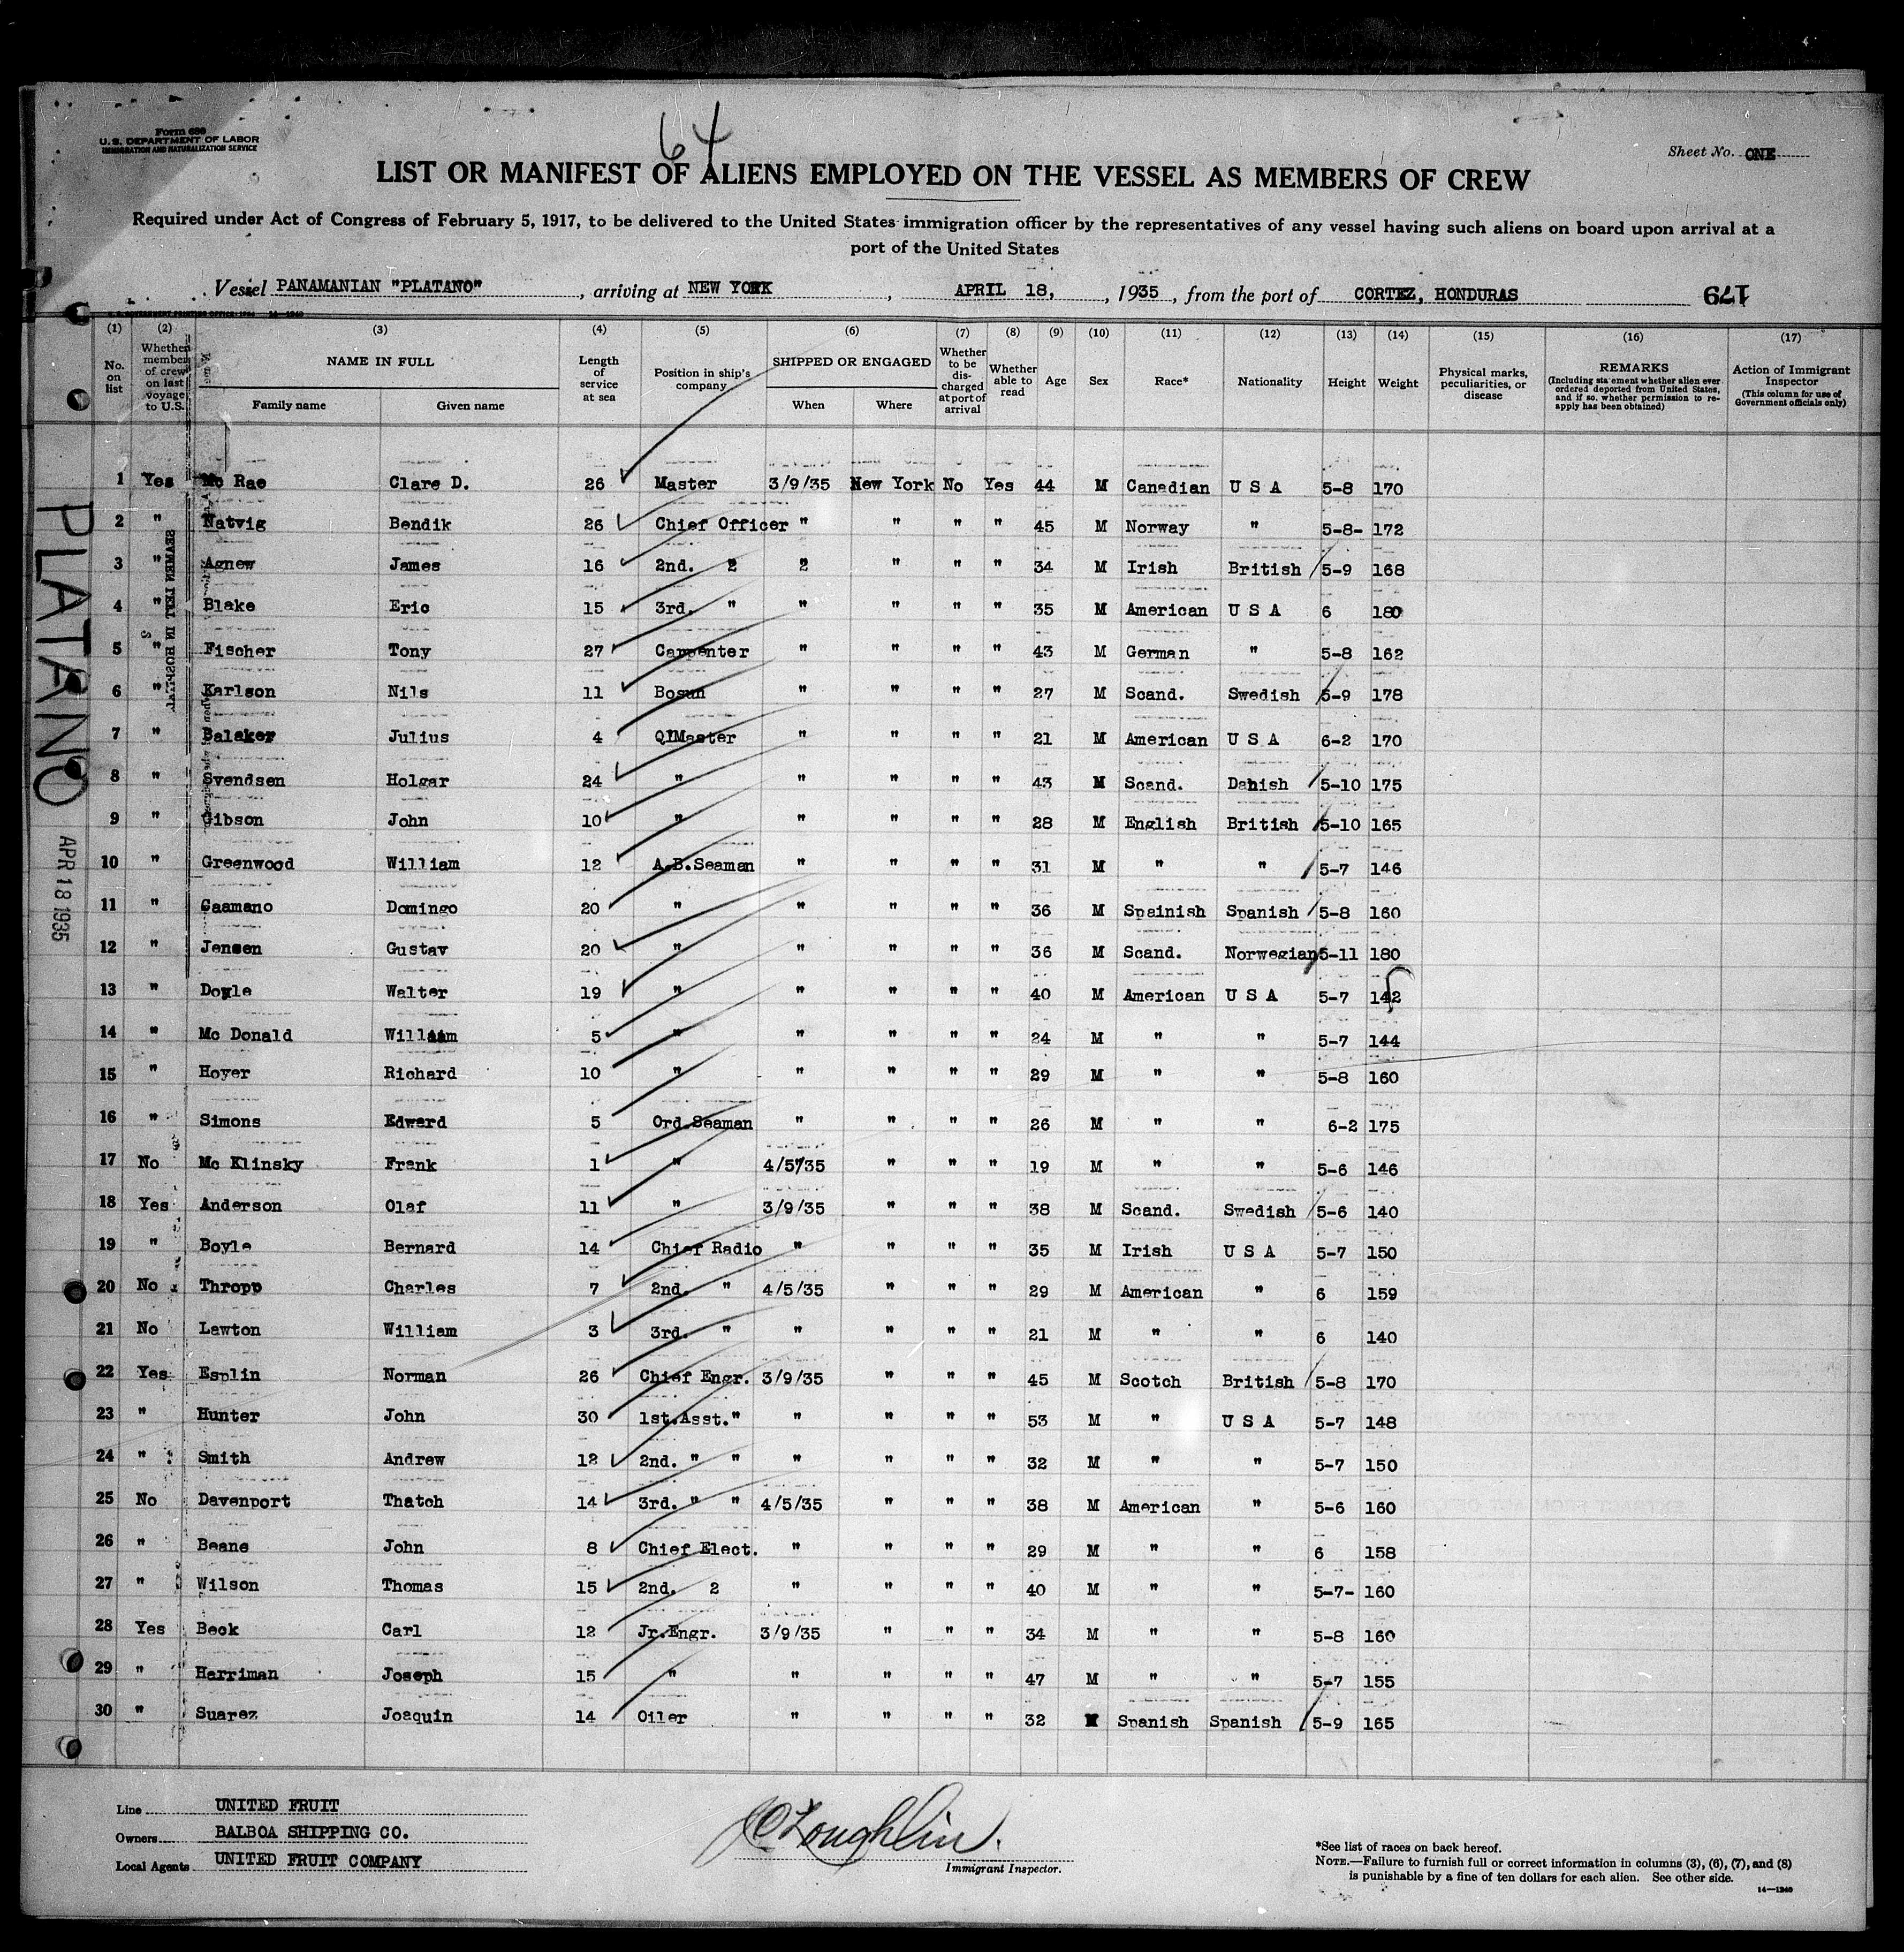 64
Form 680
U. S. DEPARTMENT OF LABOR
IMMIGRATION AND NATURALIZATION SERVICE
Sheet No. ONE
LIST OR MANIFEST OF ALIENS EMPLOYED ON THE VESSEL AS MEMBERS OF CREW
Required under Act of Congress of February 5, 1917, to be delivered to the United States immigration officer by the representatives of any vessel having such aliens on board upon arrival at a
port of the United States
Vessel PANAMANIAN "PLATANO", arriving at NEW YORK, APRIL 18, 1935, from the port of CORTEZ, HONDURAS 179
(1) (2) (3) (4) (5) (6) (7) (8) (9) (10) (11) (12) (13) (14) (15) (16) (17)
No. on list
Whether member of crew on last voyage to U.S.
NAME IN FULL
Family name Given name
Length of service at sea
Position in ship's company
SHIPPED OR ENGAGED
When Where
Whether to be discharged at port of arrival
Whether able to read
Age
Sex
Race*
Nationality
Height
Weight
Physical marks, peculiarities, or disease
REMARKS
(Including statement whether alien ever ordered deported from United States, and if so, whether permission to re-apply has been obtained)
Action of Immigrant Inspector
(This column for use of Government officials only)
1 Yes Mc Rae Clare D. 26 Master 3/9/35 New York No Yes 44 M Canadian U S A 5-8 170
2 " Natvig Bendik 26 Chief Officer " " " " 45 M Norway " 5-8- 172
3 " Agnew James 16 2nd. 2 2 " " " 34 M Irish British 5-9 168
4 " Blake Eric 15 3rd. " " " " " 35 M American U S A 6 180
5 " Fischer Tony 27 Carpenter " " " " 43 M German " 5-8 162
6 " Karlson Nils 11 Bosun " " " " 27 M Scand. Swedish 5-9 178
7 " Balaker Julius 4 Q'Master " " " " 21 M American U S A 6-2 170
8 " Svendsen Holgar 24 " " " " " 43 M Scand. Danish 5-10 175
9 " Gibson John 10 " " " " " 28 M English British 5-10 165
10 " Greenwood William 12 A.B.Seaman " " " " 31 M " " 5-7 146
11 " Caamano Domingo 20 " " " " " 36 M Spainish Spanish 5-8 160
12 " Jensen Gustav 20 " " " " " 36 M Scand. Norwegian 5-11 180
13 " Doyle Walter 19 " " " " " 40 M American U S A 5-7 142
14 " Mc Donald William 5 " " " " " 24 M " " 5-7 144
15 " Hoyer Richard 10 " " " " " 29 M " " 5-8 160
16 " Simons Edward 5 Ord.Seaman " " " " 26 M " " 6-2 175
17 No Mc Klinsky Frank 1 " 4/5/35 " " " 19 M " " 5-6 146
18 Yes Anderson Olaf 11 " 3/9/35 " " " 38 M Scand. Swedish 5-6 140
19 " Boyle Bernard 14 Chief Radio " " " " 35 M Irish U S A 5-7 150
20 No Thropp Charles 7 2nd. " 4/5/35 " " " 29 M American " 6 159
21 No Lawton William 3 3rd. " " " " " 21 M " " 6 140
22 Yes Esplin Norman 26 Chief Engr. 3/9/35 " " " 45 M Scotch British 5-8 170
23 " Hunter John 30 1st.Asst." " " " " 53 M " U S A 5-7 148
24 " Smith Andrew 12 2nd. " " " " " " 32 M " " 5-7 150
25 No Davenport Thatch 14 3rd. " " 4/5/35 " " " 38 M American " 5-6 160
26 " Beane John 8 Chief Elect. " " " " 29 M " " 6 158
27 " Wilson Thomas 15 2nd. 2 " " " " 40 M " " 5-7- 160
28 Yes Beck Carl 12 Jr.Engr. 3/9/35 " " " 34 M " " 5-8 160
29 " Harriman Joseph 15 " " " " " 47 M " " 5-7 155
30 " Suarez Joaquin 14 Oiler " " " " 32 M Spanish Spanish 5-9 165
PLATANO
APR 18 1935
SEAMEN LEFT IN HOSPITAL
Line UNITED FRUIT
Owners BALBOA SHIPPING CO.
Local Agents UNITED FRUIT COMPANY
Immigrant Inspector.
*See list of races on back hereof.
NOTE.—Failure to furnish full or correct information in columns (3), (6), (7), and (8)
is punishable by a fine of ten dollars for each alien. See other side.
14—1240